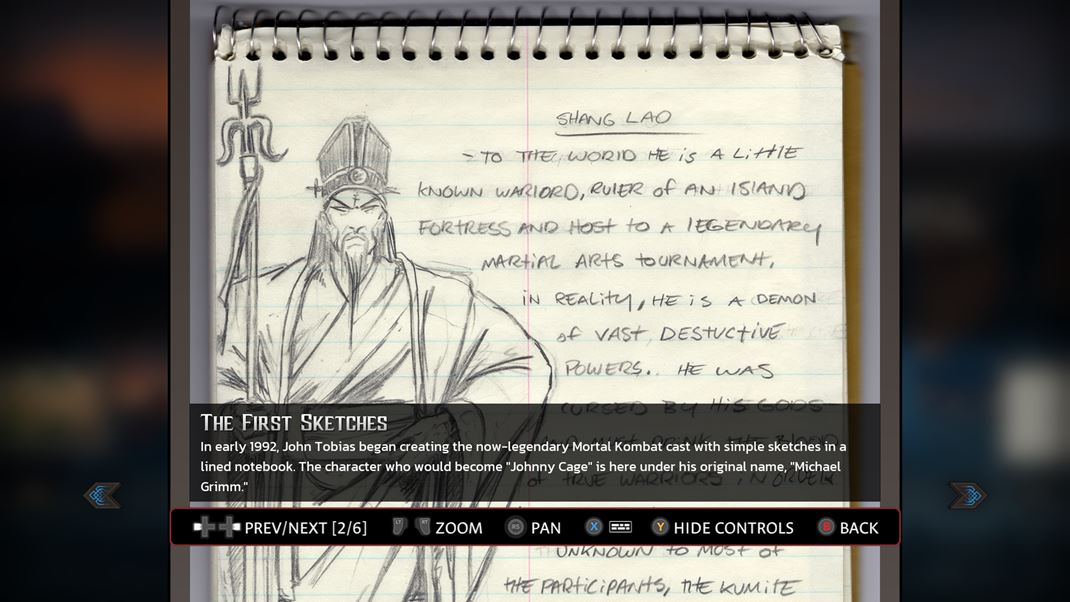 SHANG LAO
- TO THE WORLD HE is A LiTTlE
KNOWN WARLORD, RULER of AN ISLAND
FORTRESS AND HOST TO A LEGENDARY
MARTIAL ARTS TOURNAMENT,
iN REALITY, HE iS A DEMON
of VAST DESTUCTiVE
POWERS.. HE WAS
CURSED BY HiS GODS
AND MUST DRINK THE BLOOD
of TRUE WARRIORS iN ORDER
UNKNOWN TO MOST of
THE PARTICIPANTS, THE KUMITE
The First Sketches
In early 1992, John Tobias began creating the now-legendary Mortal Kombat cast with simple sketches in a
lined notebook. The character who would become "Johnny Cage" is here under his original name, "Michael
Grimm."
PREV/NEXT [2/6] LT RT ZOOM RS PAN X Y HIDE CONTROLS B BACK